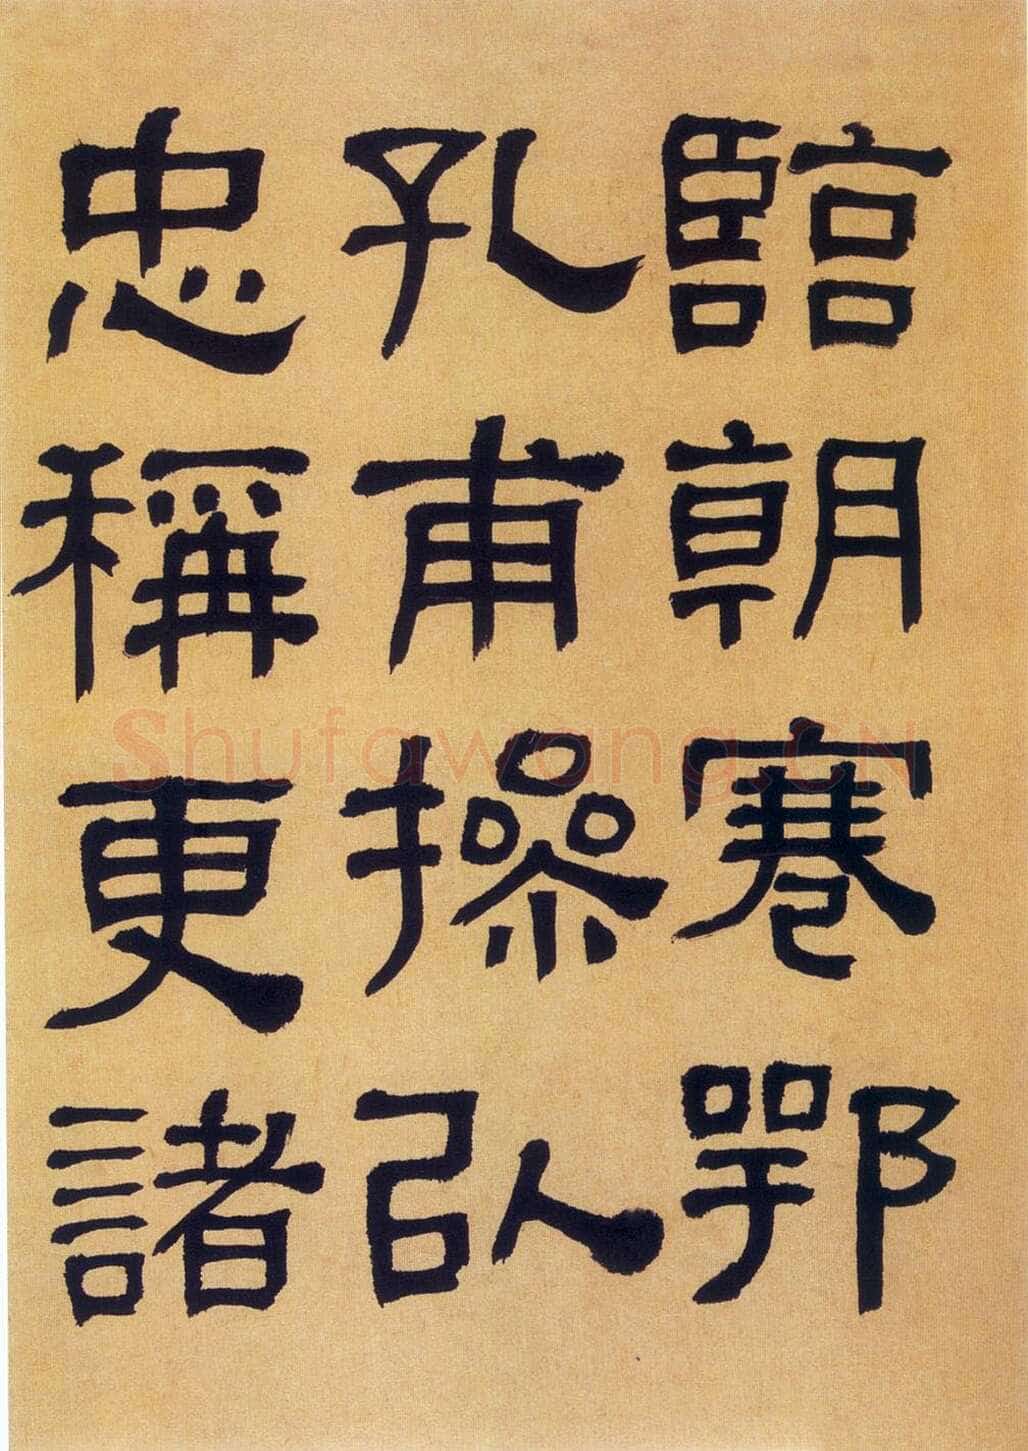 臨朝寋鄂
孔甫操以
忠稱更諸
Shufawang.CN